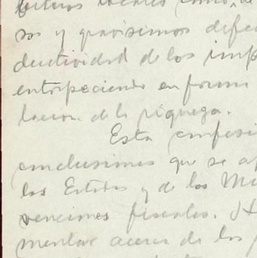 locales como,
sos y gravísimos defec
ductividad de los imp
entorpeciendo en forma
lación de la riqueza.
Esta confesi
conclusiones que se a
los Estados y de los Mu
venciones fiscales.
mentar acerca de los